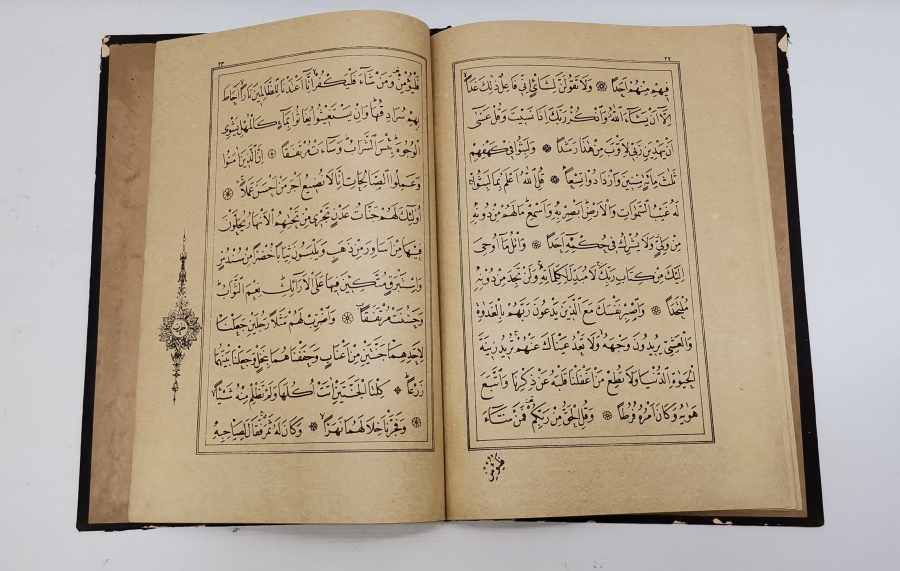 ٢٢
فِيهِمْ مِنْهُمْ اَحَدًا وَلَا تَقُولَنَّ لِشَايْءٍ اِنّ۪ي فَاعِلٌ ذٰلِكَ غَدًا
اِلَّا اَنْ يَشَاءَ اللّٰهُ وَاذْكُرْ رَبَّكَ اِذَا نَسِيتَ وَقُلْ عَسٰى
اَنْ يَهْدِيَنِ رَبّ۪ي لِاَقْرَبَ مِنْ هٰذَا رَشَدًا وَلَبِثُوا فِي كَهْفِهِمْ
ثَلٰثَ مِائَةٍ سِنِينَ وَازْدَادُوا تِسْعًا قُلِ اللّٰهُ اَعْلَمُ بِمَا لَبِثُوا
لَهُ غَيْبُ السَّمٰوَاتِ وَالْاَرْضِ اَبْصِرْ بِهِ وَاَسْمِعْ مَا لَهُمْ مِنْ دُونِهِ
مِنْ وَلِيٍّ وَلَا يُشْرِكُ فِي حُكْمِهِ اَحَدًا وَاتْلُ مَا اُوحِيَ
اِلَيْكَ مِنْ كِتَابِ رَبِّكَ لَا مُبَدِّلَ لِكَلِمَاتِهِ وَلَنْ تَجِدَ مِنْ دُونِهِ
مُلْتَحَدًا وَاصْبِرْ نَفْسَكَ مَعَ الَّذِينَ يَدْعُونَ رَبَّهُمْ بِالْغَدٰوةِ
وَالْعَشِيِّ يُرِيدُونَ وَجْهَهُ وَلَا تَعْدُ عَيْنَاكَ عَنْهُمْ تُرِيدُ زِينَةَ
الْحَيٰوةِ الدُّنْيَا وَلَا تُطِعْ مَنْ اَغْفَلْنَا قَلْبَهُ عَنْ ذِكْرِنَا وَاتَّبَعَ
هَوٰيهُ وَكَانَ اَمْرُهُ فُرُطًا وَقُلِ الْحَقُّ مِنْ رَبِّكُمْ فَمَنْ شَاءَ
فَلْيُؤْمِنْ
٢٣
فَلْيُؤْمِنْ وَمَنْ شَاءَ فَلْيَكْفُرْ اِنَّا اَعْتَدْنَا لِلظَّالِمِينَ نَارًا اَحَاطَ
بِهِمْ سُرَادِقُهَا وَاِنْ يَسْتَغِيثُوا يُغَاثُوا بِمَاءٍ كَالْمُهْلِ يَشْوِي
الْوُجُوهَ بِئْسَ الشَّرَابُ وَسَاءَتْ مُرْتَفَقًا اِنَّ الَّذِينَ اٰمَنُوا
وَعَمِلُوا الصَّالِحَاتِ اِنَّا لَا نُضِيعُ اَجْرَ مَنْ اَحْسَنَ عَمَلًا
اُولٰئِكَ لَهُمْ جَنَّاتُ عَدْنٍ تَجْرِي مِنْ تَحْتِهِمُ الْاَنْهَارُ يُحَلَّوْنَ
فِيهَا مِنْ اَسَاوِرَ مِنْ ذَهَبٍ وَيَلْبَسُونَ ثِيَابًا خُضْرًا مِنْ سُنْدُسٍ
وَاِسْتَبْرَقٍ مُتَّكِئِينَ فِيهَا عَلَى الْاَرَائِكِ نِعْمَ الثَّوَابُ
وَحَسُنَتْ مُرْتَفَقًا وَاضْرِبْ لَهُمْ مَثَلًا رَجُلَيْنِ جَعَلْنَا
لِاَحَدِهِمَا جَنَّتَيْنِ مِنْ اَعْنَابٍ وَحَفَفْنَاهُمَا بِنَخْلٍ وَجَعَلْنَا بَيْنَهُمَا
زَرْعًا كِلْتَا الْجَنَّتَيْنِ اٰتَتْ اُكُلَهَا وَلَمْ تَظْلِمْ مِنْهُ شَيْئًا
وَفَجَّرْنَا خِلَالَهُمَا نَهَرًا وَكَانَ لَهُ ثَمَرٌ فَقَالَ لِصَاحِبِهِ